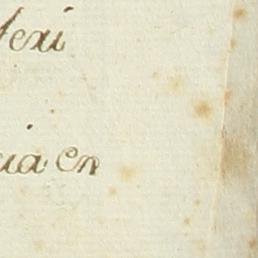 texi
ua en